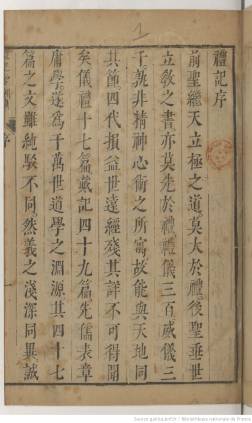 禮記序
前聖繼天立極之道莫大於禮後聖垂世
立教之書亦莫先於禮禮儀三百威儀三
千孰非精神心術之所寓故能與天地同
其節四代損益世遠經殘其詳不可得聞
矣儀禮十七篇戴記四十九篇先儒表章
庸學遂為千萬世道學之淵源其四十七
篇之文雖純駁不同然義之淺深同異誠
1
Source gallica.bnf.fr / Bibliothèque nationale de France